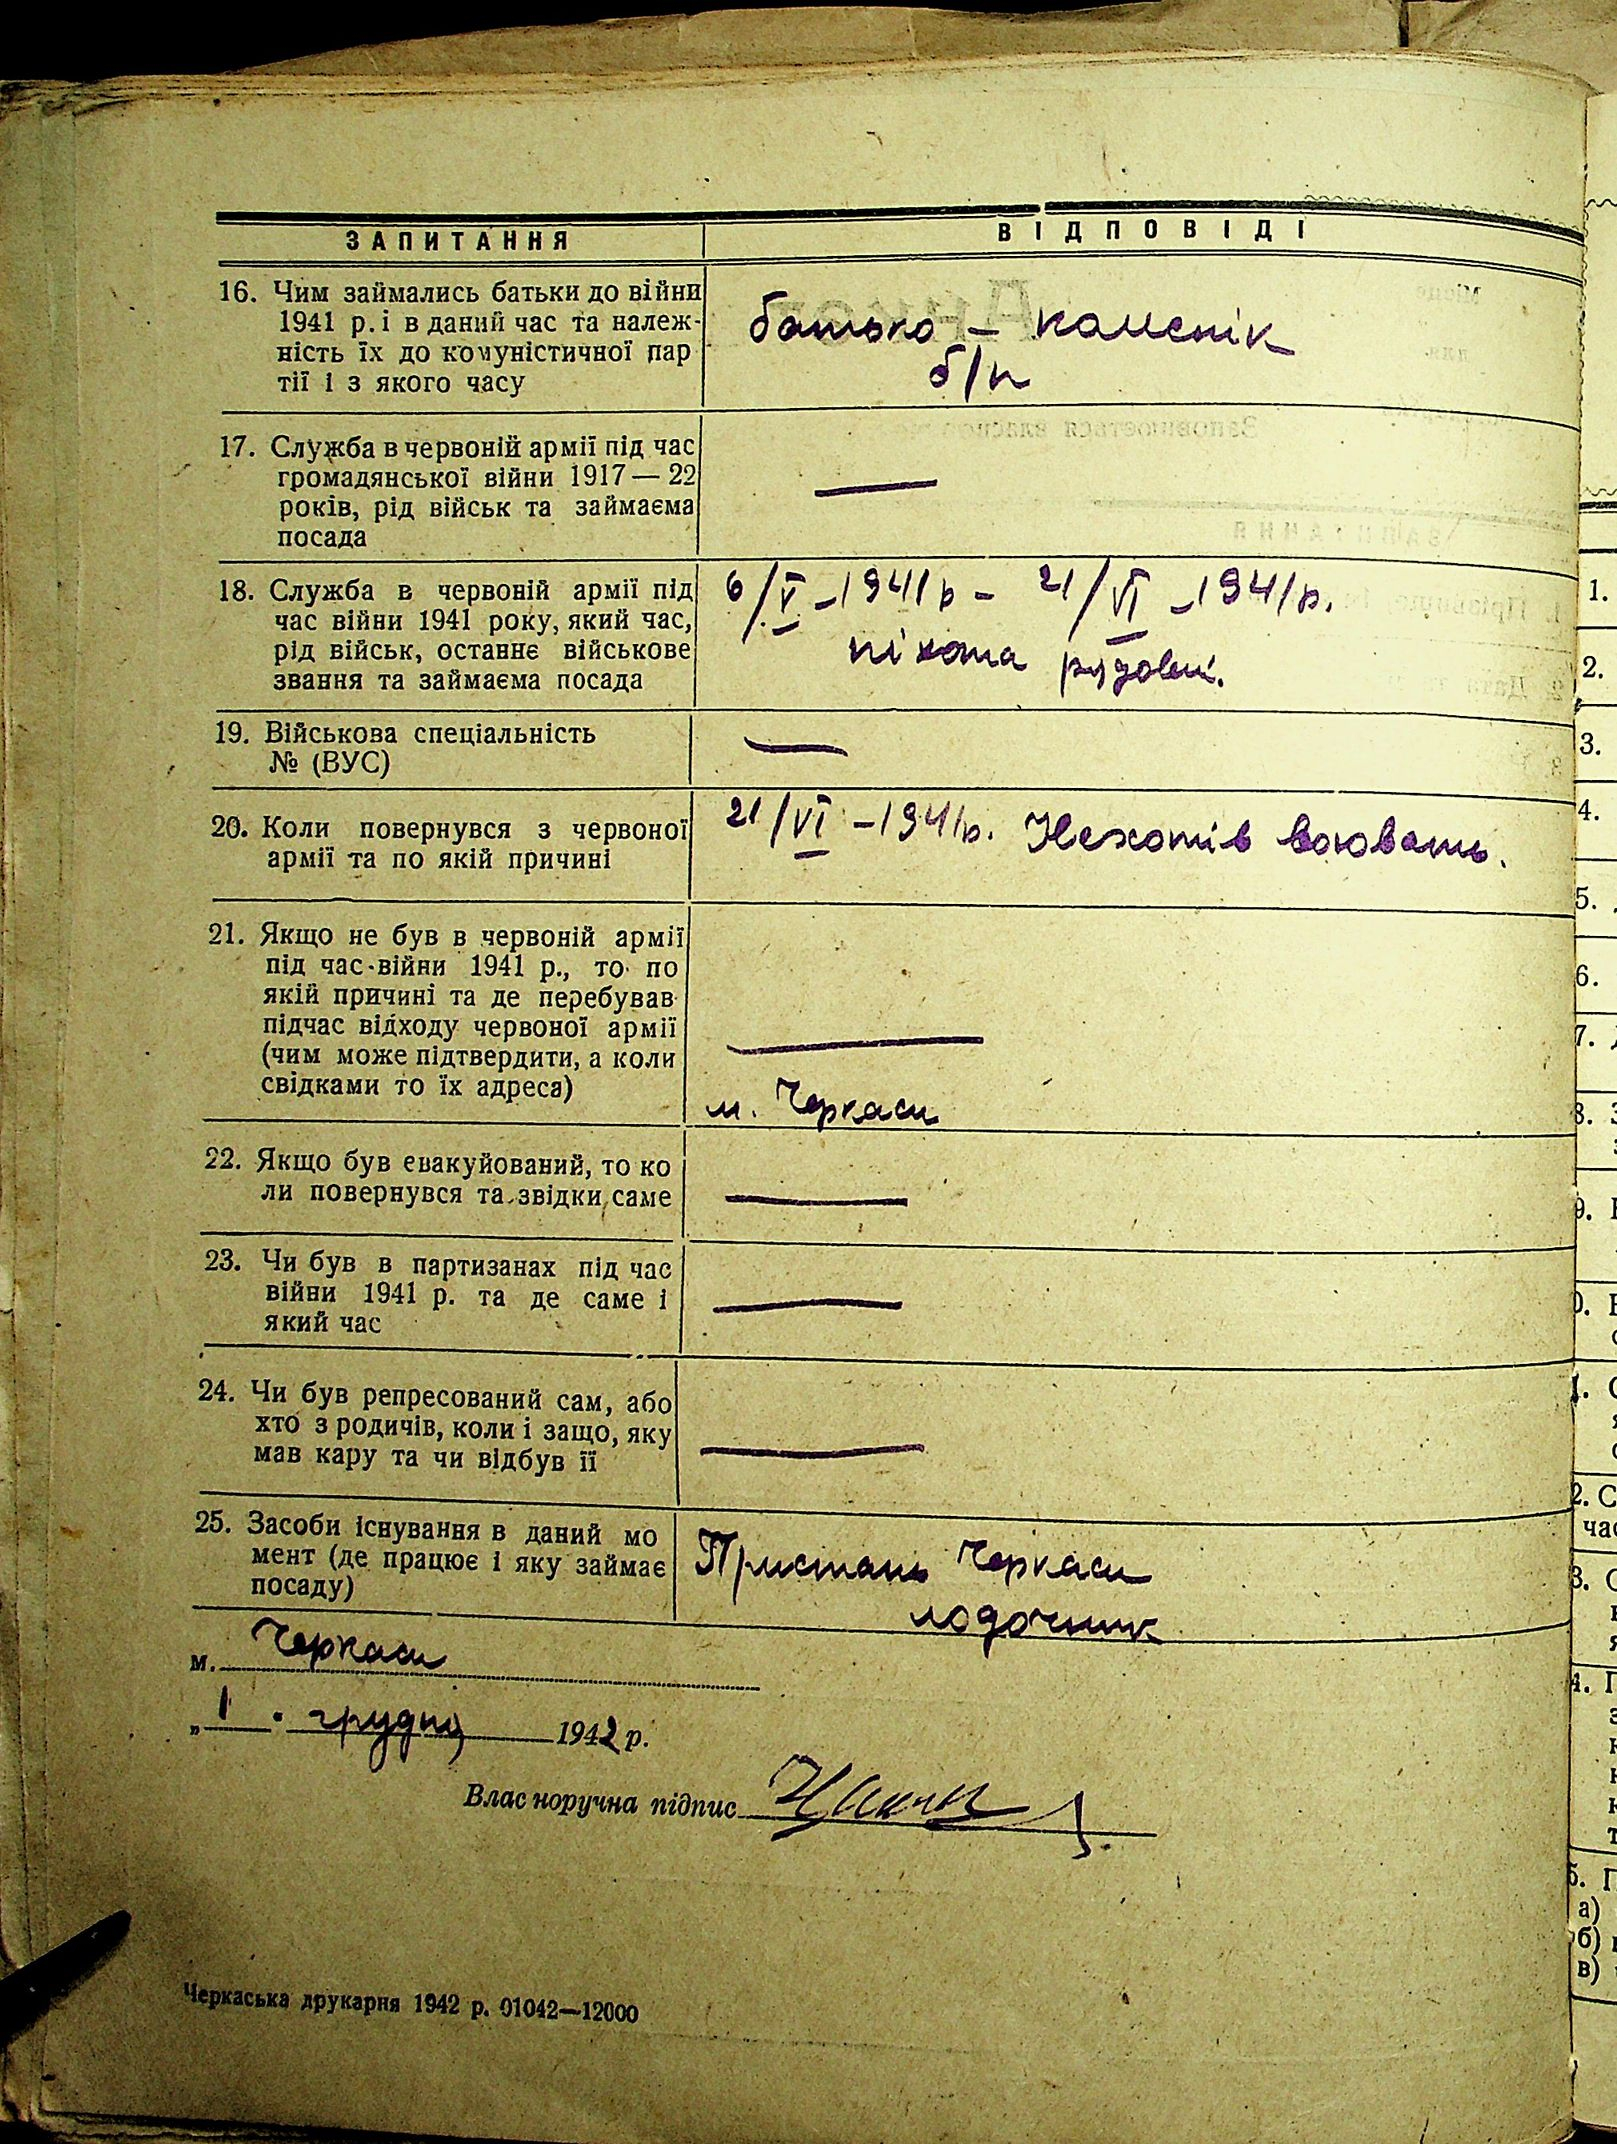 ЗАПИТАННЯ ВІДПОВІДІ
16. Чим займались батьки до війни
1941 р. і в даний час та належ-
ність їх до комуністичної пар
тії і з якого часу
батько – каменік
б/п
17. Служба в червоній армії під час
громадянської війни 1917 — 22
років, рід військ та займаєма
посада
—
18. Служба в червоній армії під
час війни 1941 року, який час,
рід військ, останнє військове
звання та займаєма посада
6/V – 1941 р – 21/VI – 1941 р.
піхота рядовий.
19. Військова спеціальність
№ (ВУС)
—
20. Коли повернувся з червоної
армії та по якій причині
21/VI – 1941 р. Нехотів воювать.
21. Якщо не був в червоній армії
під час війни 1941 р., то по
якій причині та де перебував
підчас відходу червоної армії
(чим може підтвердити, а коли
свідками то їх адреса)
—
м. Черкаси
22. Якщо був евакуйований, то ко
ли повернувся та звідки саме
—
23. Чи був в партизанах під час
війни 1941 р. та де саме і
який час
—
24. Чи був репресований сам, або
хто з родичів, коли і защо, яку
мав кару та чи відбув її
—
25. Засоби існування в даний мо
мент (де працює і яку займає
посаду)
Пристань Черкаси
лодочник
м. Черкаси
„1" грудня 1942 р.
Влас норучна підпис
Черкаська друкарня 1942 р. 01042—12000
1.
2.
3.
4.
5.
6.
7.
8.
9.
а)
б)
в)